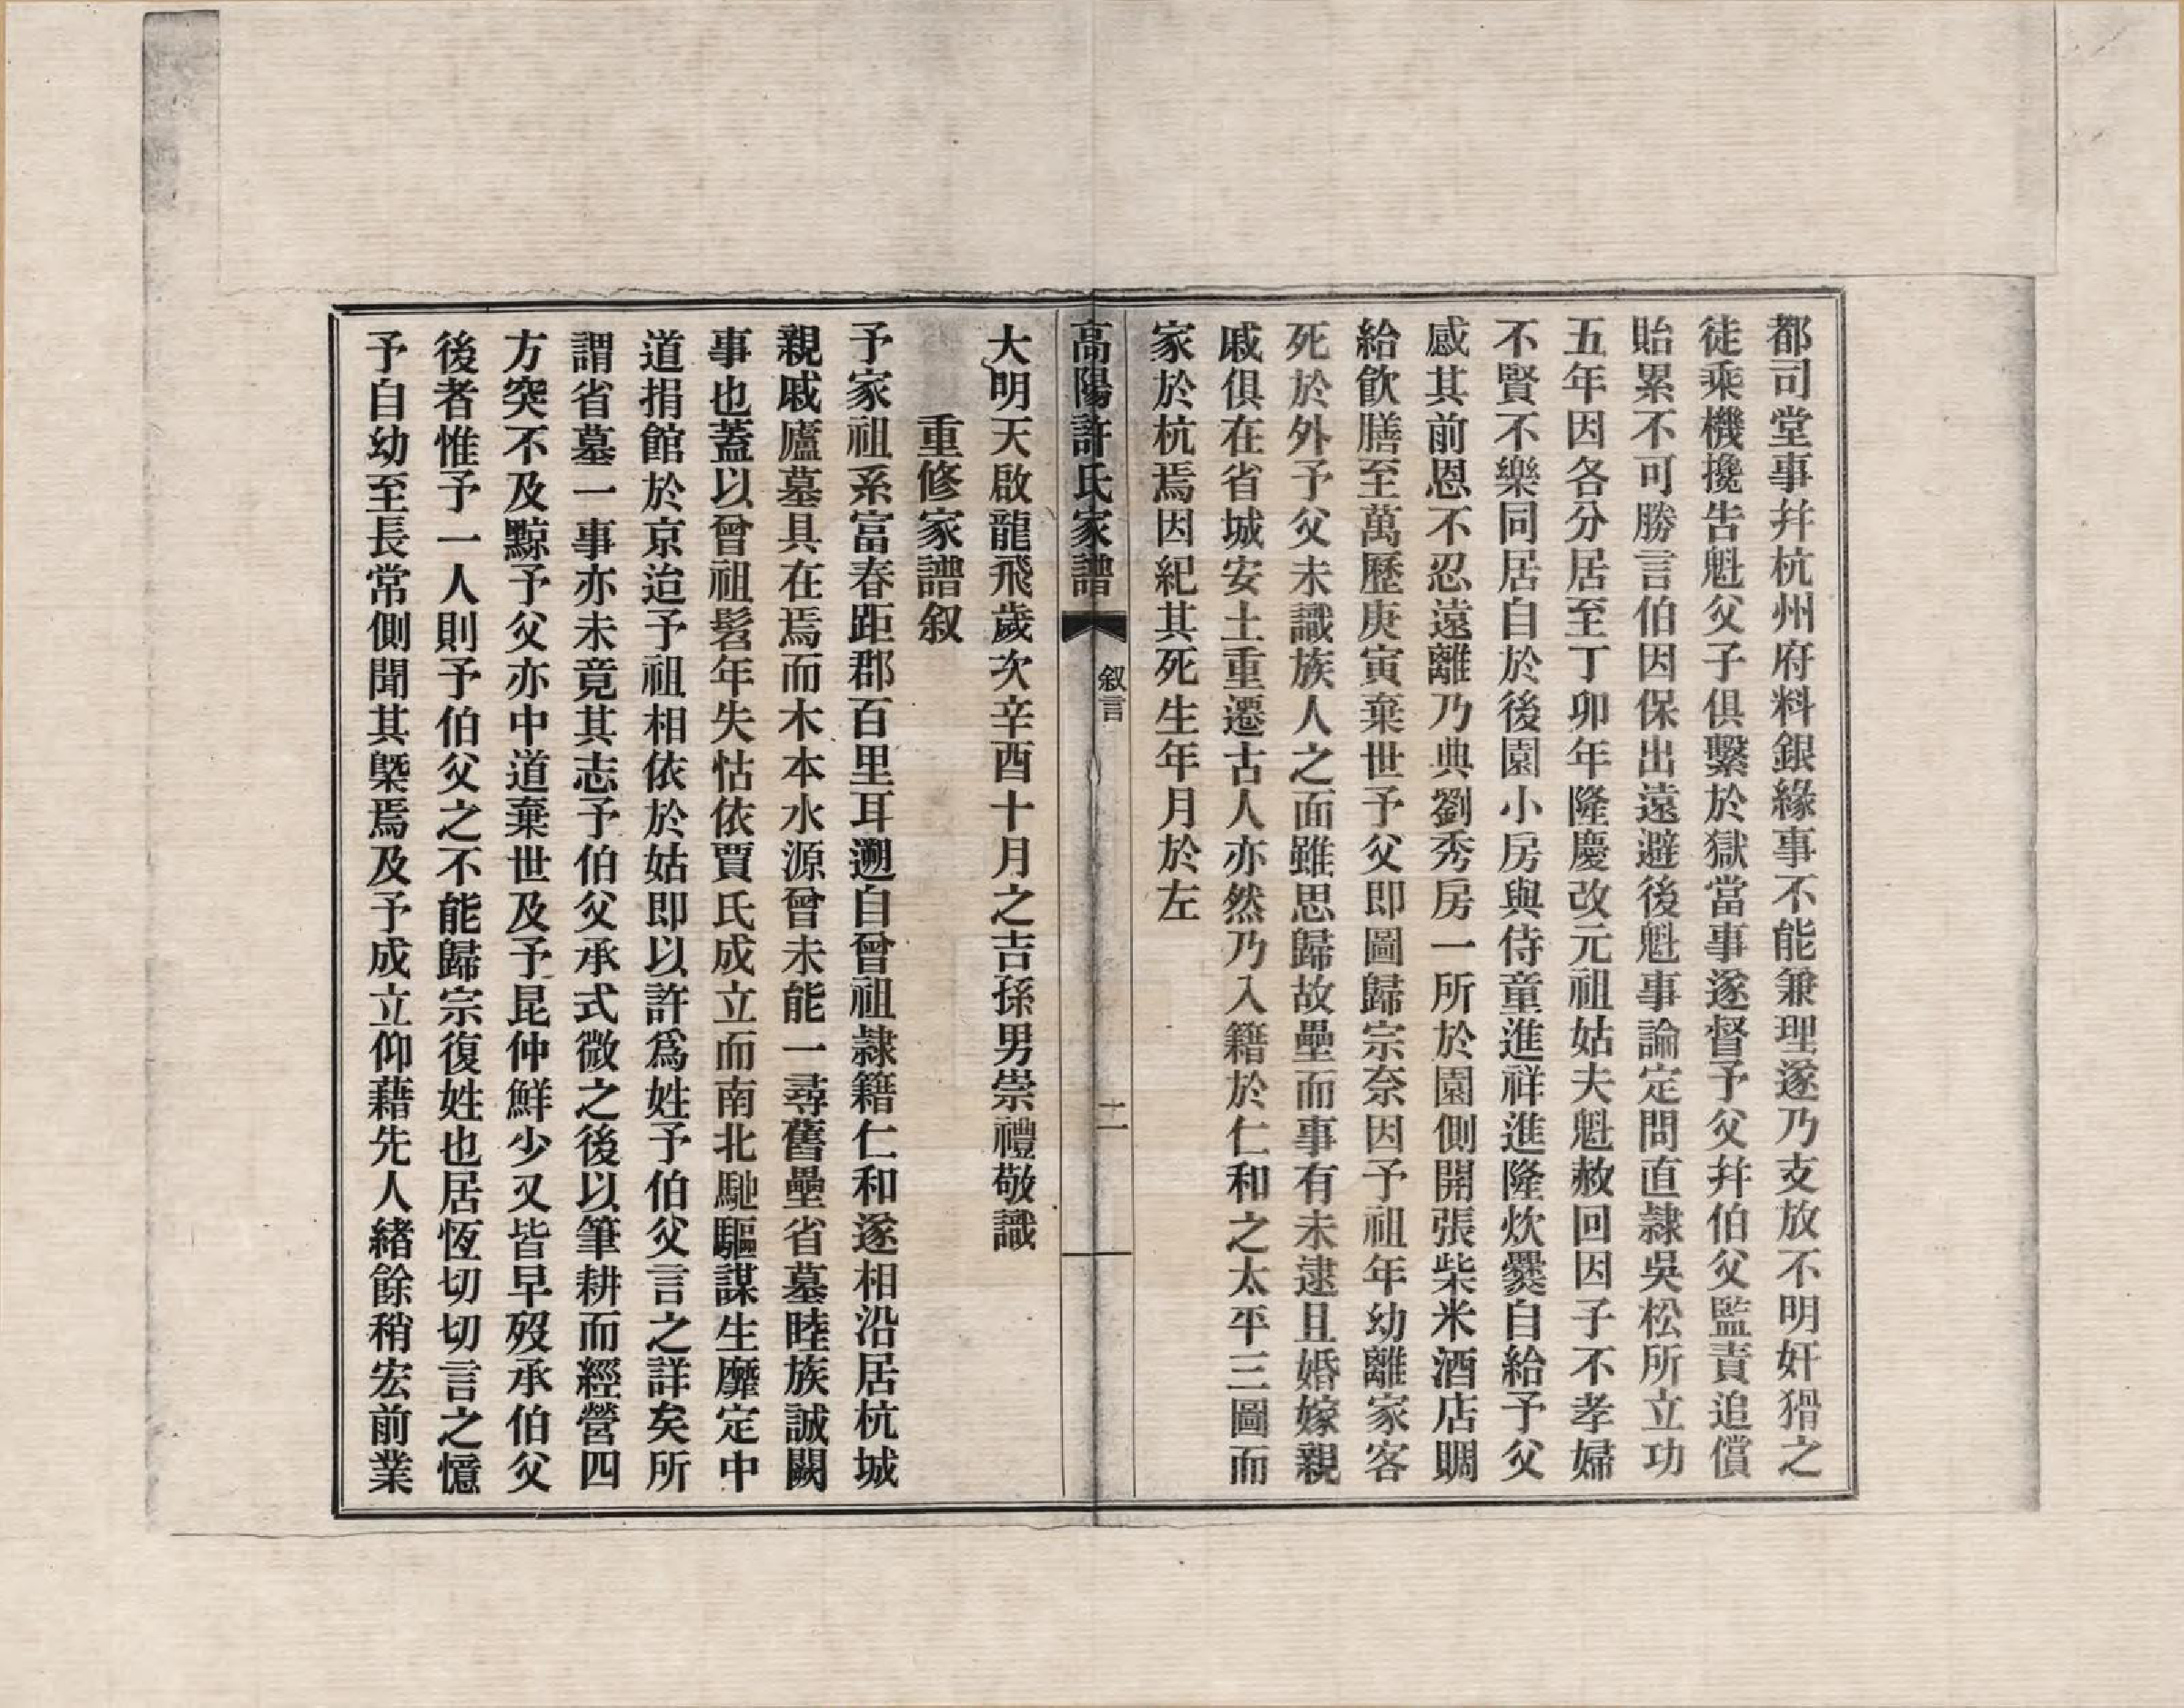 都司堂事幷杭州府料銀緣事不能兼理遂乃支放不明奸猾之
徒乘機攙告魁父子俱繫於獄當事遂督予父幷伯父監責追償
貽累不可勝言伯因保出遠避後魁事論定問直隷吳松所立功
五年因各分居至丁卯年隆慶改元祖姑夫魁赦回因子不孝婦
不賢不樂同居自於後園小房與侍童進祥進隆炊爨自給予父
感其前恩不忍遠離乃典劉秀房一所於園側開張柴米酒店賙
給飮膳至萬歷庚寅棄世予父即圖歸宗奈因予祖年幼離家客
死於外予父未識族人之面雖思歸故壘而事有未逮且婚嫁親
戚俱在省城安土重遷古人亦然乃入籍於仁和之太平三圖而
家於杭焉因紀其死生年月於左
高陽許氏家譜
叙言
十二
大明天啟龍飛歲次辛酉十月之吉孫男崇禮敬識
重修家譜叙
予家祖系富春距郡百里耳遡自曾祖隷籍仁和遂相沿居杭城
親戚廬墓具在焉而木本水源曾未能一尋舊壘省墓睦族誠闕
事也蓋以曾祖髫年失怙依賈氏成立而南北馳驅謀生靡定中
道捐館於京迨予祖相依於姑即以許爲姓予伯父言之詳矣所
謂省墓一事亦未竟其志予伯父承式微之後以筆耕而經營四
方突不及黥予父亦中道棄世及予昆仲鮮少又皆早歿承伯父
後者惟予一人則予伯父之不能歸宗復姓也居恆切切言之憶
予自幼至長常側聞其槩焉及予成立仰藉先人緒餘稍宏前業